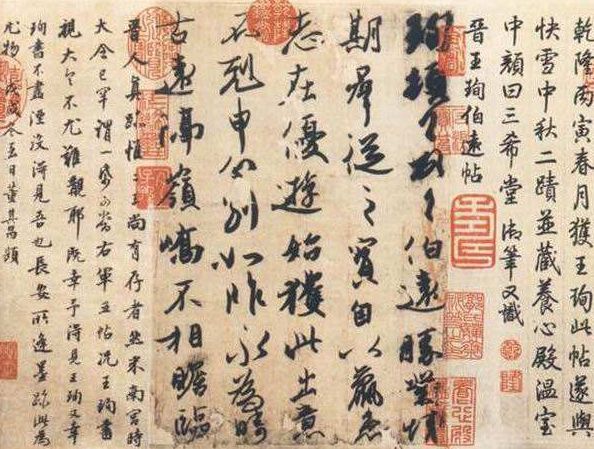 乾隆丙寅春月獲王珣此帖遂與
快雪中秋二蹟並藏養心殿溫室
中顏曰三希堂御筆又識
晉王珣伯遠帖
珣頓首頓首伯遠勝業情
期群從之寶自以羸患
志在優遊始獲此出意
不剋申分別如昨永為疇
古遠隔嶺嶠不相瞻臨
晉人真跡惟二王尚有存者然米南宮時
大令已罕謂一紙可當右軍五帖況王珣書
視大令不尤難覯耶既幸予得見王珣又幸
珣書不盡湮沒得見吾也長安所逢墨跡此為
尤物 戊戌冬至日董其昌題